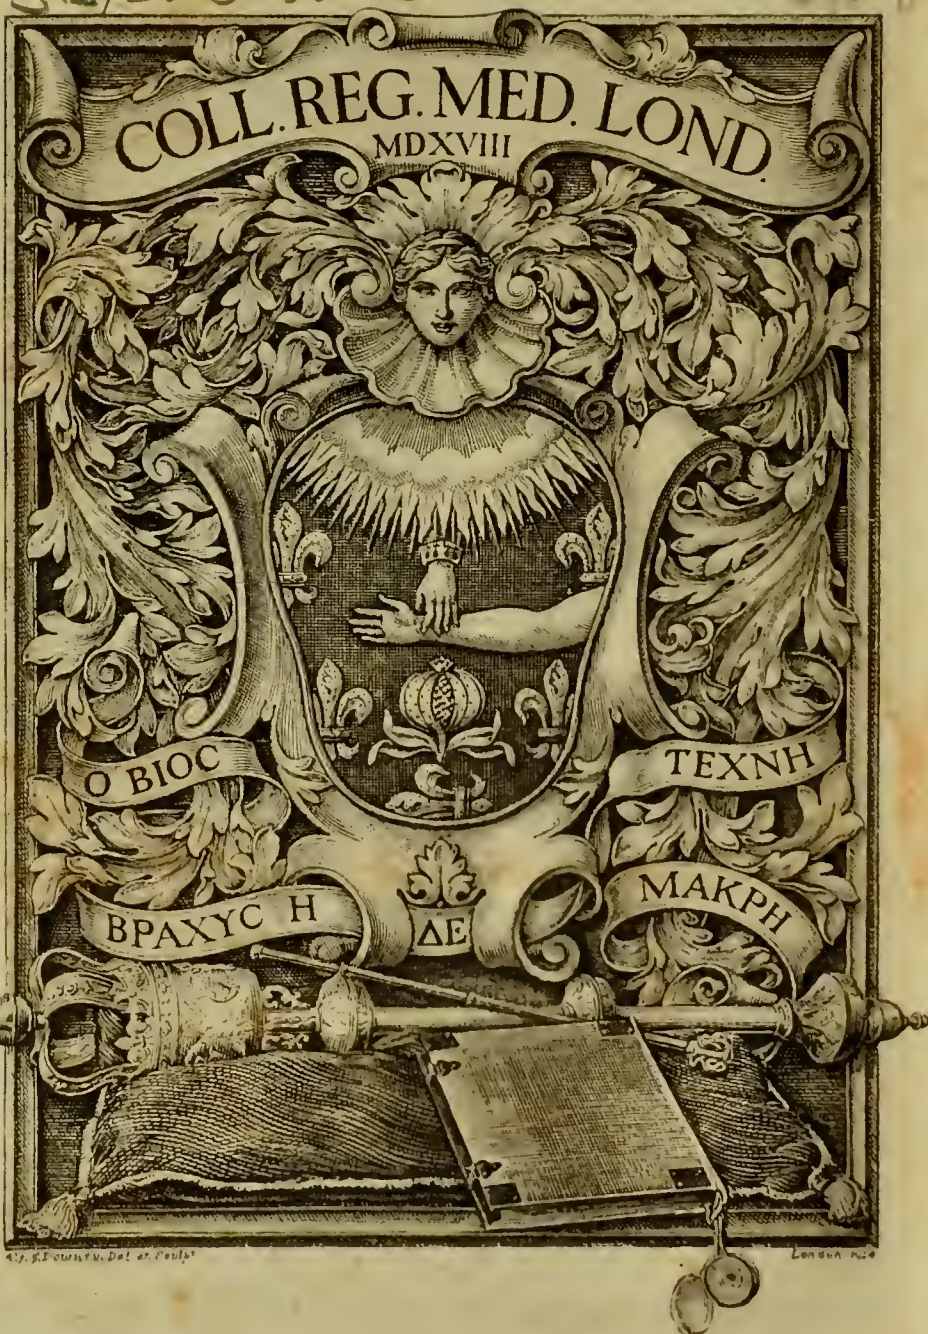 COLL. REG. MED. LOND.
MDXVIII
Ο ΒΙΟC
ΒΡΑΧΥC Η
ΔΕ
ΤΕΧΝΗ
ΜΑΚΡΗ
Del et Sculpt
London